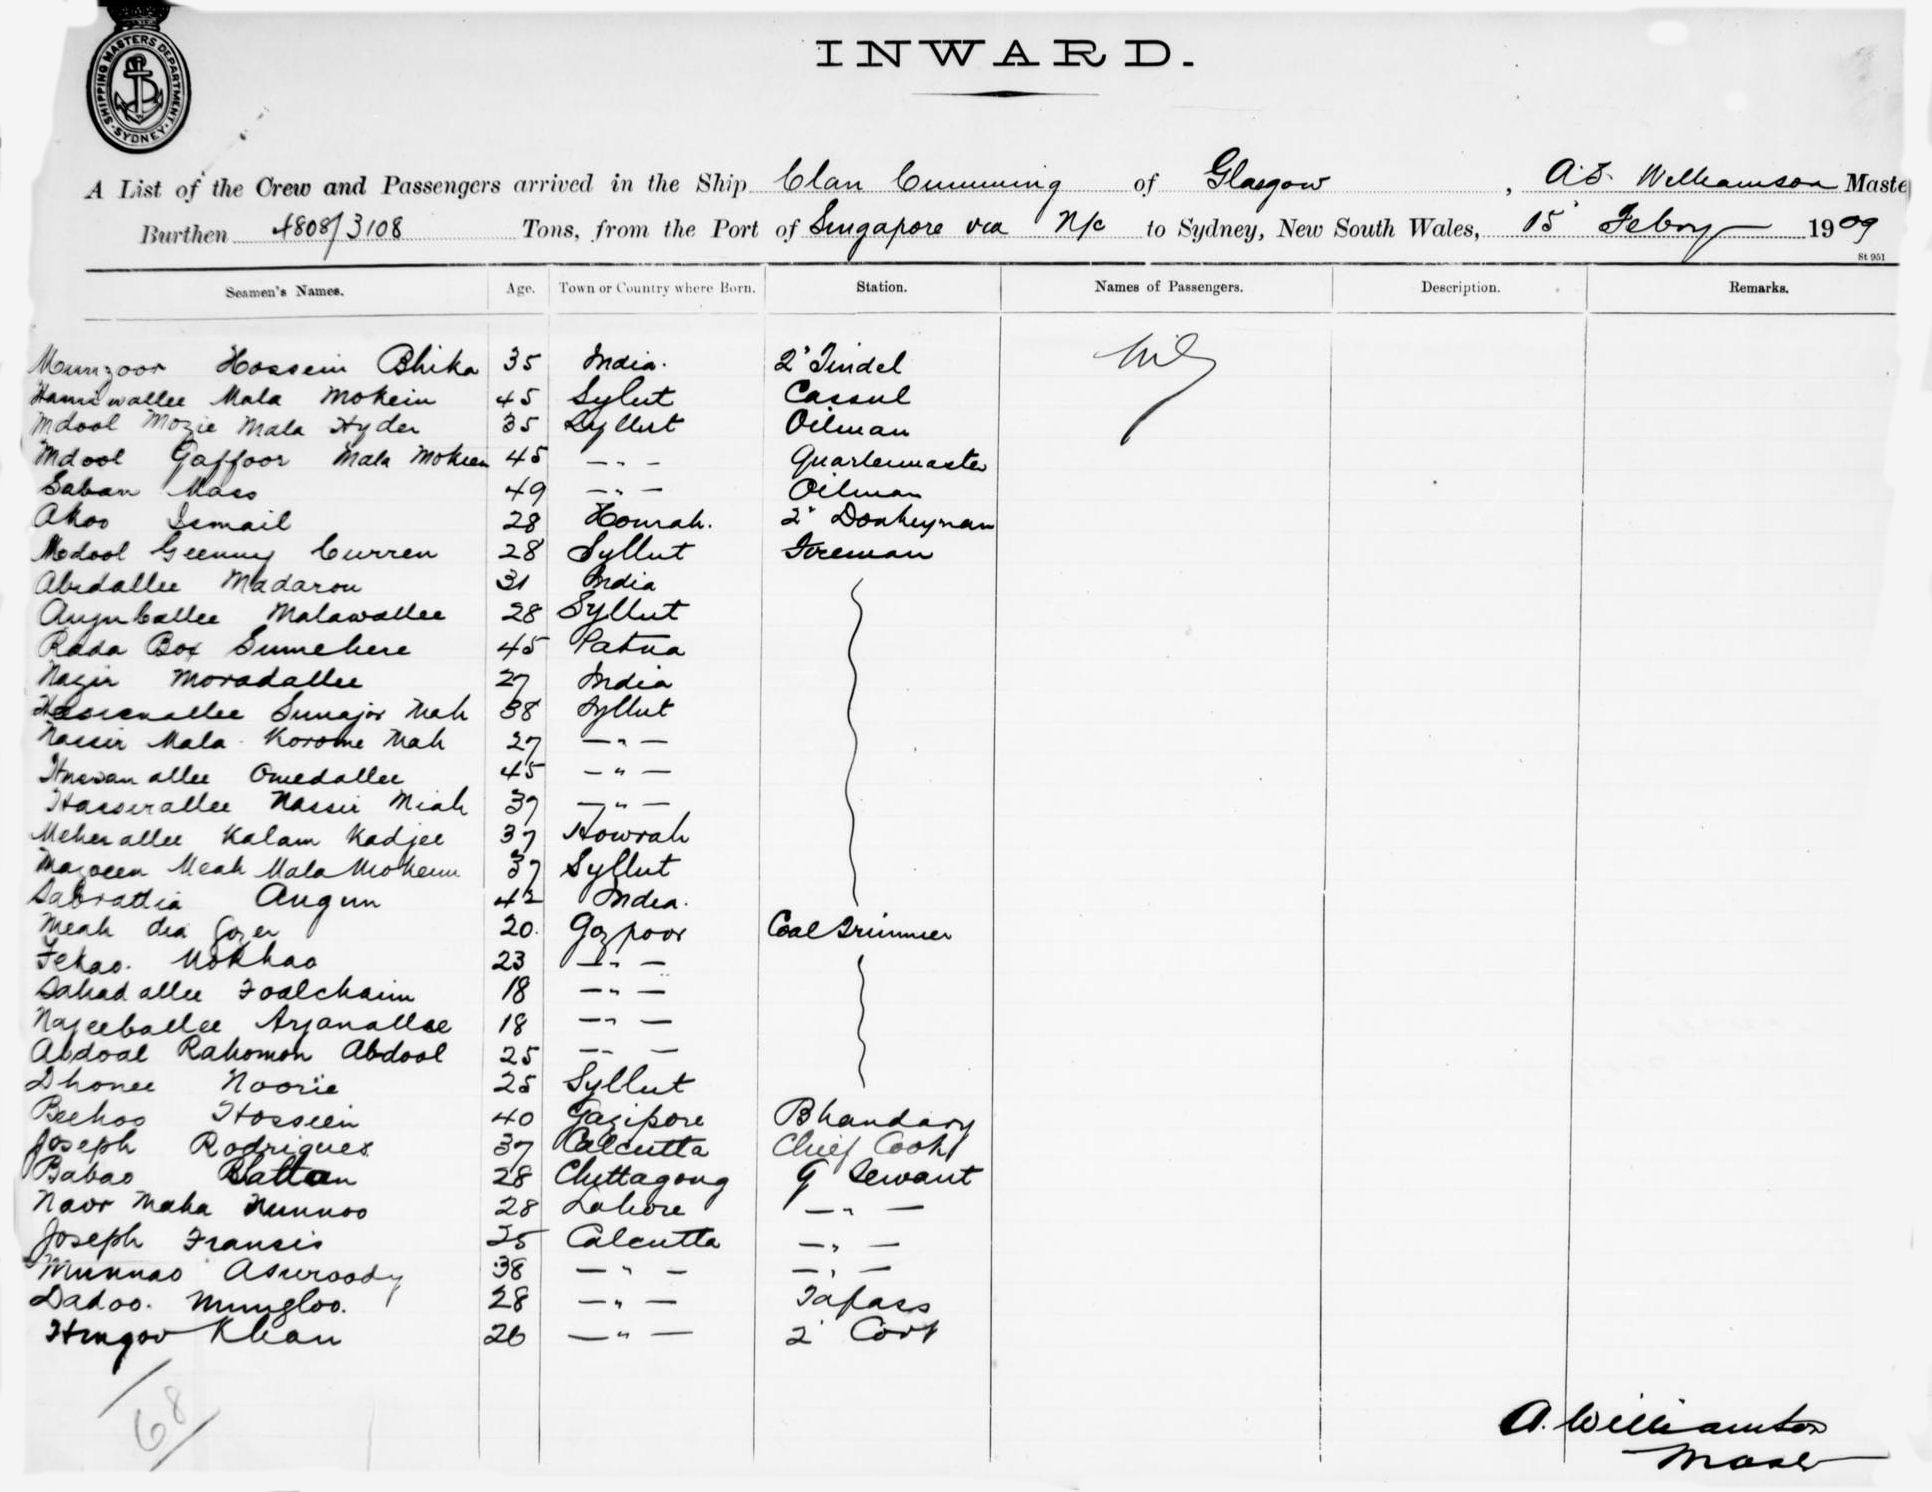 SHIPPING MASTERS DEPARTMENT · SYDNEY ·
INWARD.
A List of the Crew and Passengers arrived in the Ship Clan Cumming of Glasgow, A.S. Williamson Maste
Burthen 4808/3108 Tons, from the Port of Singapore via N/c to Sydney, New South Wales, 15 Febry 1909
St 951
Seamen's Names. Age. Town or Country where Born. Station. Names of Passengers. Description. Remarks.
Munzoor Hossein Bhika 35 India. 2" Tindel Nil
Hamiwallee Mala Mokein 45 Sylut Cassul
Mdool Mozie Mala Hyder 35 Syllut Oilman
Mdool Gaffoor Mala Mokien 45 — " — Quartermaster
Saban Mass 49 — " — Oilman
Akoo Ismail 28 Hourah. 2" Donkeyman
Mdool Geenny Curren 28 Syllut Fireman
Abdallee Madarou 31 India
Aujuballee Malawallee 28 Syllut
Rada Box Sumehere 45 Patna
Nazir Moradallee 27 India
Hassenallee Sumajor Mah 38 Syllut
Nassir Mala Korome Mah 27 — " —
Hussanallee Omedallee 45 — " —
Hasserallee Nassir Miah 37 — " —
Meherallee Kalam Kadjee 37 Howrah
Mazoeen Meah Mala Mokeim 37 Syllut
Sabrattia Augun 42 India.
Meah dia Gozer 20. Gozpoor Coal Trimmer
Fekao. Mokhao 23 — " —
Sahadallee Foalchaim 18 — " —
Najeeballee Arjanallee 18 — " —
Abdoal Rahomon Abdool 25 — " —
Dhonee Noorie 25 Syllut
Beehoo Hossein 40 Gazipore Bhandary
Joseph Rodrigues 37 Calcutta Chief Cook
Babao Battan 28 Chittagong G Servant
Noor Maha Nunnoo 28 Lahore — " —
Joseph Francis 25 Calcutta — " —
Munnao Asuroody 38 — " — — " —
Dadoo. Mungloo. 28 — " — Topass
Hingoo Khan 26 — " — 2" Cook
68
A. Williamson
Master